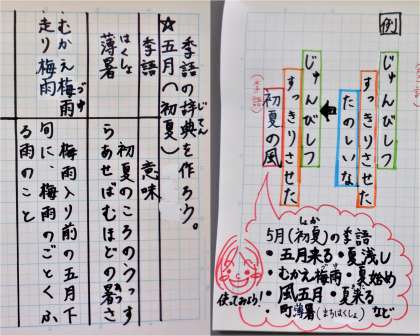 季語の辞典を作ろう。
じてん
☆五月(初夏)
季語
意味
薄暑
はくしょ
初夏のころのうっす
らあせばむほどの暑さ
あつ
むかえ梅雨
づゆ
走り梅雨
梅雨入り前の五月下
旬に、梅雨のごとくふ
る雨のこと
例
じゅんびしつ
すっきりさせた
たのしいな
じゅんびしつ
すっきりさせた
初夏の風
(季語)
しょか
5月(初夏)の季語
・五月来る・夏浅し
・むかえ梅雨・夏始め
・風五月・夏来る
・町薄暑(まちはくしょ)など
使ってみよう!